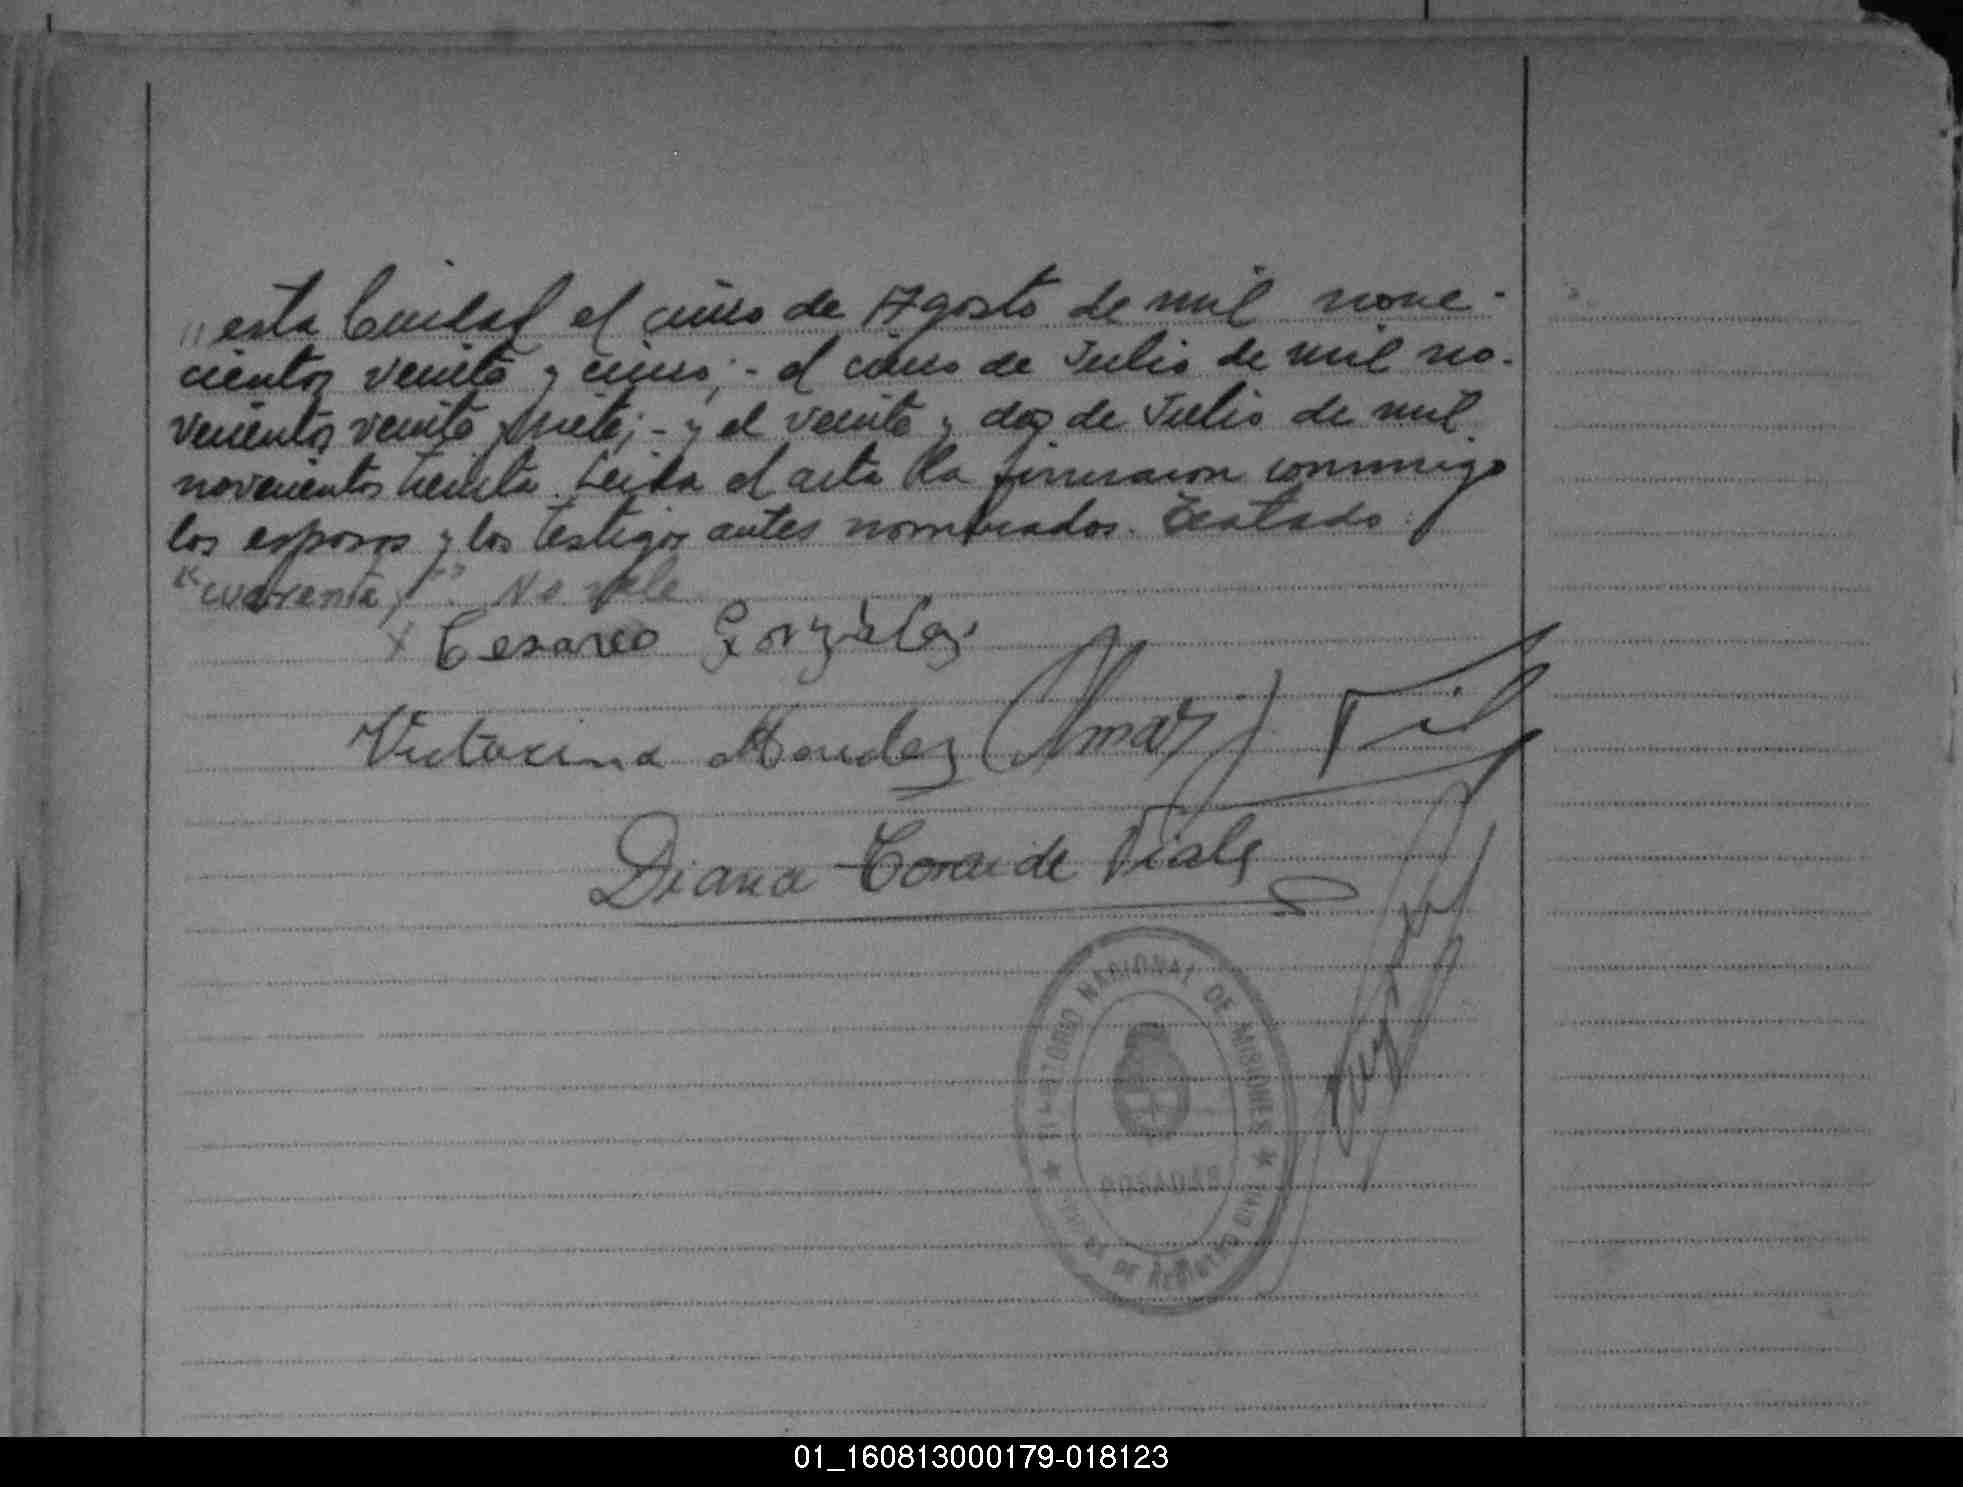 "esta Ciudad el cinco de Agosto de mil nove-
cientos veinte y cinco;- el cinco de Julio de mil no-
vecientos veinte y siete;- y el veinte y dos de Julio de mil
novecientos treinta. Leida el acta la firmaron conmigo
los esposos y los testigos antes nombrados. Testado:
"cuarenta," No vale
x Cesareo Gonzalez
Victorina Mendez
Omar J.
Diana Cora de Viale
TERRITORIO NACIONAL DE MISIONES
POSADAS
REGISTRO CIVIL
01_160813000179-018123